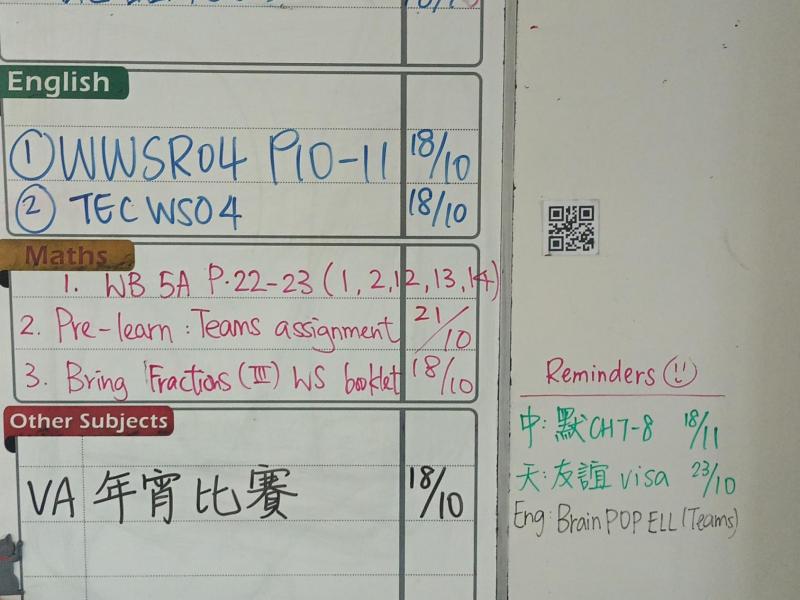 English
① WWSR04 P10-11 18/10
② TEC WS04 18/10
Maths
1. WB 5A P.22-23 (1, 2, 12, 13, 14)
2. Pre-learn: Teams assignment 21/10
3. Bring Fractions (III) WS booklet 18/10
Other Subjects
VA 年宵比賽 18/10
Reminders
中: 默 CH7-8 18/11
天: 友誼 visa 23/10
Eng: Brain POP ELL (Teams)